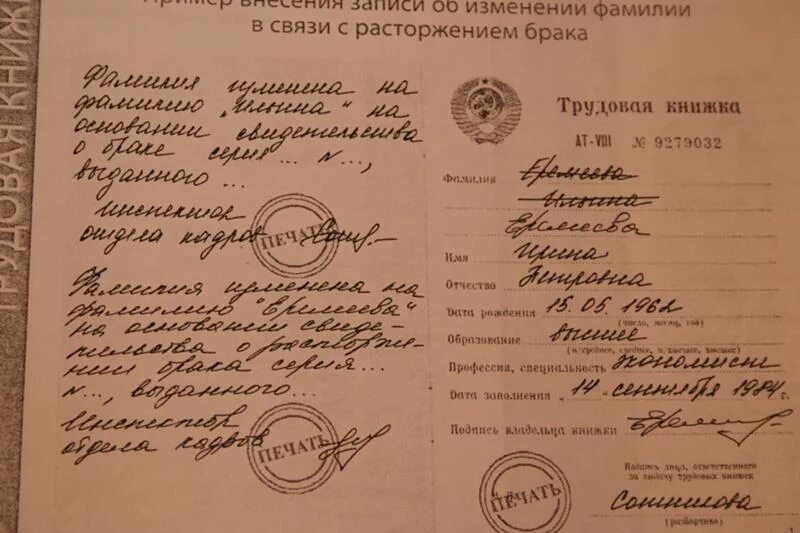 Пример внесения записи об изменении фамилии
в связи с расторжением брака
ТРУДОВАЯ КНИЖК
Фамилия изменена на
фамилию „Ильина" на
основании свидетельства
о браке серия ... N...,
выданного ...
Инспектор
отдела кадров
ПЕЧАТЬ
Фамилия изменена на
фамилию "Еремеева"
на основании свиде-
тельства о расторже-
нии брака серия...
N..., выданного...
Инспектор
отдела кадров
ПЕЧАТЬ
Трудовая книжка
АТ-VIII № 9279032
Фамилия Еремеева
Ильина
Еремеева
Имя Ирина
Отчество Петровна
Дата рождения 15.05.1962
(число, месяц, год)
Образование высшее
(н/среднее, среднее, н/высшее, высшее)
Профессия, специальность экономист
Дата заполнения „14" сентября 1984 г.
Подпись владельца книжки
Подпись лица, ответственного
за выдачу трудовых книжек
ПЕЧАТЬ
(разборчиво)